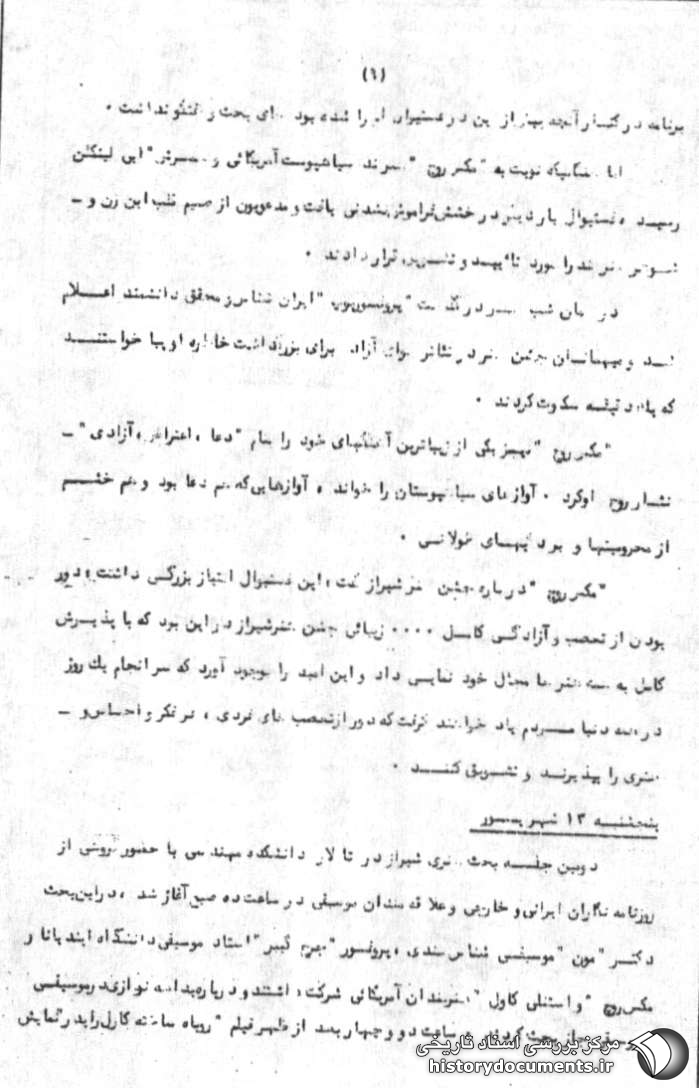 (٦)
برنامه در کنسار آنچه پیش از این در فستیوال اجرا شده بود جای بحث و گفتگو نداشت .
اما هنگامیکه نوبت به "مکس روچ" هنرمند سیاهپوست آمریکائی و همسرش "ابی لینکلن
رسید ، فستیوال بار دیگر درخشش فراموش نشدنی یافت و مدعوین از صمیم قلب این زن و ـ
شوهر هنرمند را مورد تائید و تشویق قرار دادند .
در همان شب درگذشت "پروفسور پوپ" ایران شناس و محقق دانشمند اعلام
شد و میهمانان جشن هنر در تئاتر هوای آزاد برای بزرگداشت خاطره او بپا خواستند
که یک دقیقه سکوت کردند .
"مکس روچ" نیز یکی از زیباترین آهنگهای خود را بنام "دعا ، اعتراض ، آزادی" ـ
نثار روح او کرد . آوازهای سیاهپوستان را خواند ، آوازهایی که هم دعا بود و هم خشم
از محرومیتها و بردگیهای طولانی .
"مکس روچ" درباره جشن هنر شیراز گفت ، این فستیوال امتیاز بزرگی داشت ، دور
بودن از تعصب و آزادگی کامل .... زیبائی جشن هنر شیراز در این بود که با پذیرش
کامل به همه هنرها مجال خود نمایی داد و این امید را بوجود آورد که سرانجام یك روز
در همه دنیا مردم یاد خواهند گرفت که دور از تعصب های فردی ، هر فکر و احساس و ـ
هنری را بپذیرند و تشویق کنند .
پنجشنبه ۱۳ شهریور
دومین جلسه بحث هنری شیراز در تالار دانشکده مهندسی با حضور گروهی از
روزنامه نگاران ایرانی و خارجی و علاقه مندان موسیقی در ساعت ده صبح آغاز شد . در این بحث
دکتر "مون" موسیقی شناس هندی ، پروفسور استاد موسیقی دانشگاه ایندیانا و
مکس روچ "و استنلی کاول" هنرمندان آمریکائی شرکت داشتند و درباره بداهه نوازی در موسیقی
بحث کردند . ساعت دو و چهار بعد از ظهر فیلم "روباه ساخته کارل رایدر نمایش
مرکز بررسی اسناد تاریخی
historydocuments.ir